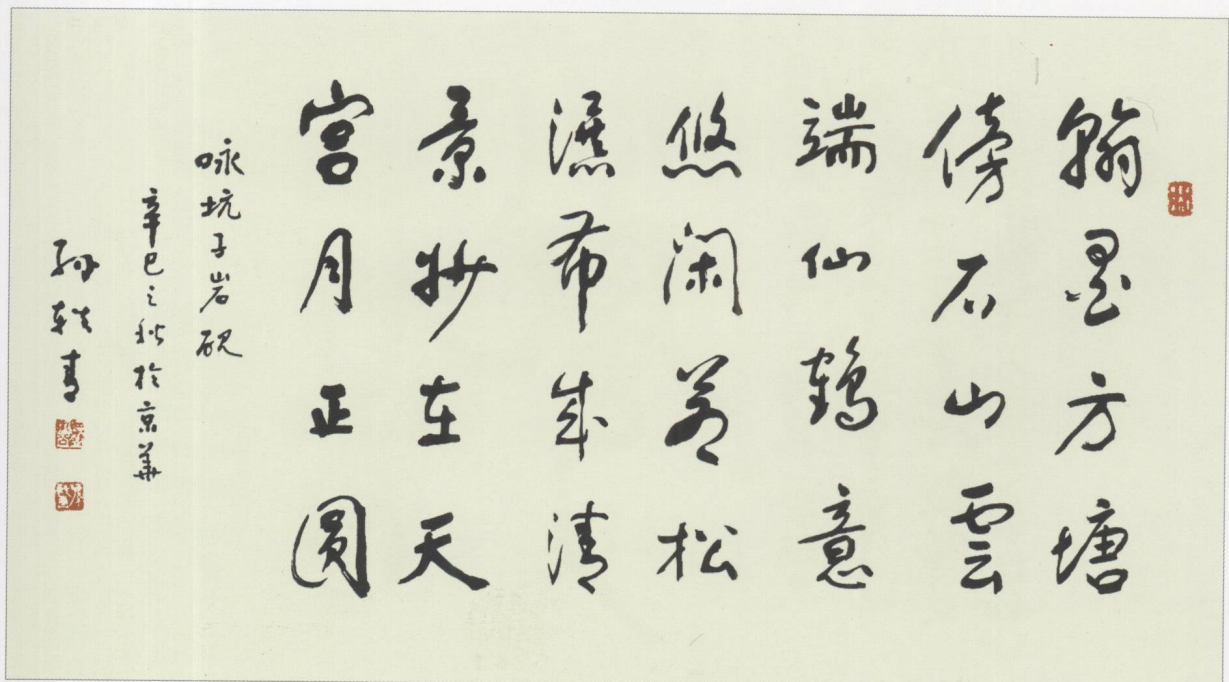 翰墨方塘
傍石山雲
端仙鶴意
悠闲蒼松
瀑布成清
景妙在天
宫月正圓
咏坑子岩硯
辛巳之秋於京華
孙轶青